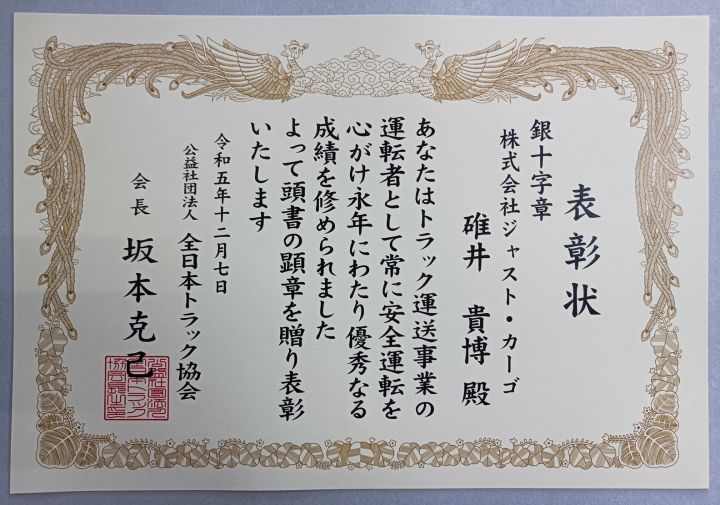 表彰状
銀十字章
株式会社ジャスト・カーゴ
碓井 貴博 殿
あなたはトラック運送事業の
運転者として常に安全運転を
心がけ永年にわたり優秀なる
成績を修められました
よって頭書の顕章を贈り表彰
いたします
令和五年十二月七日
公益社団法人 全日本トラック協会
会長 坂本克己